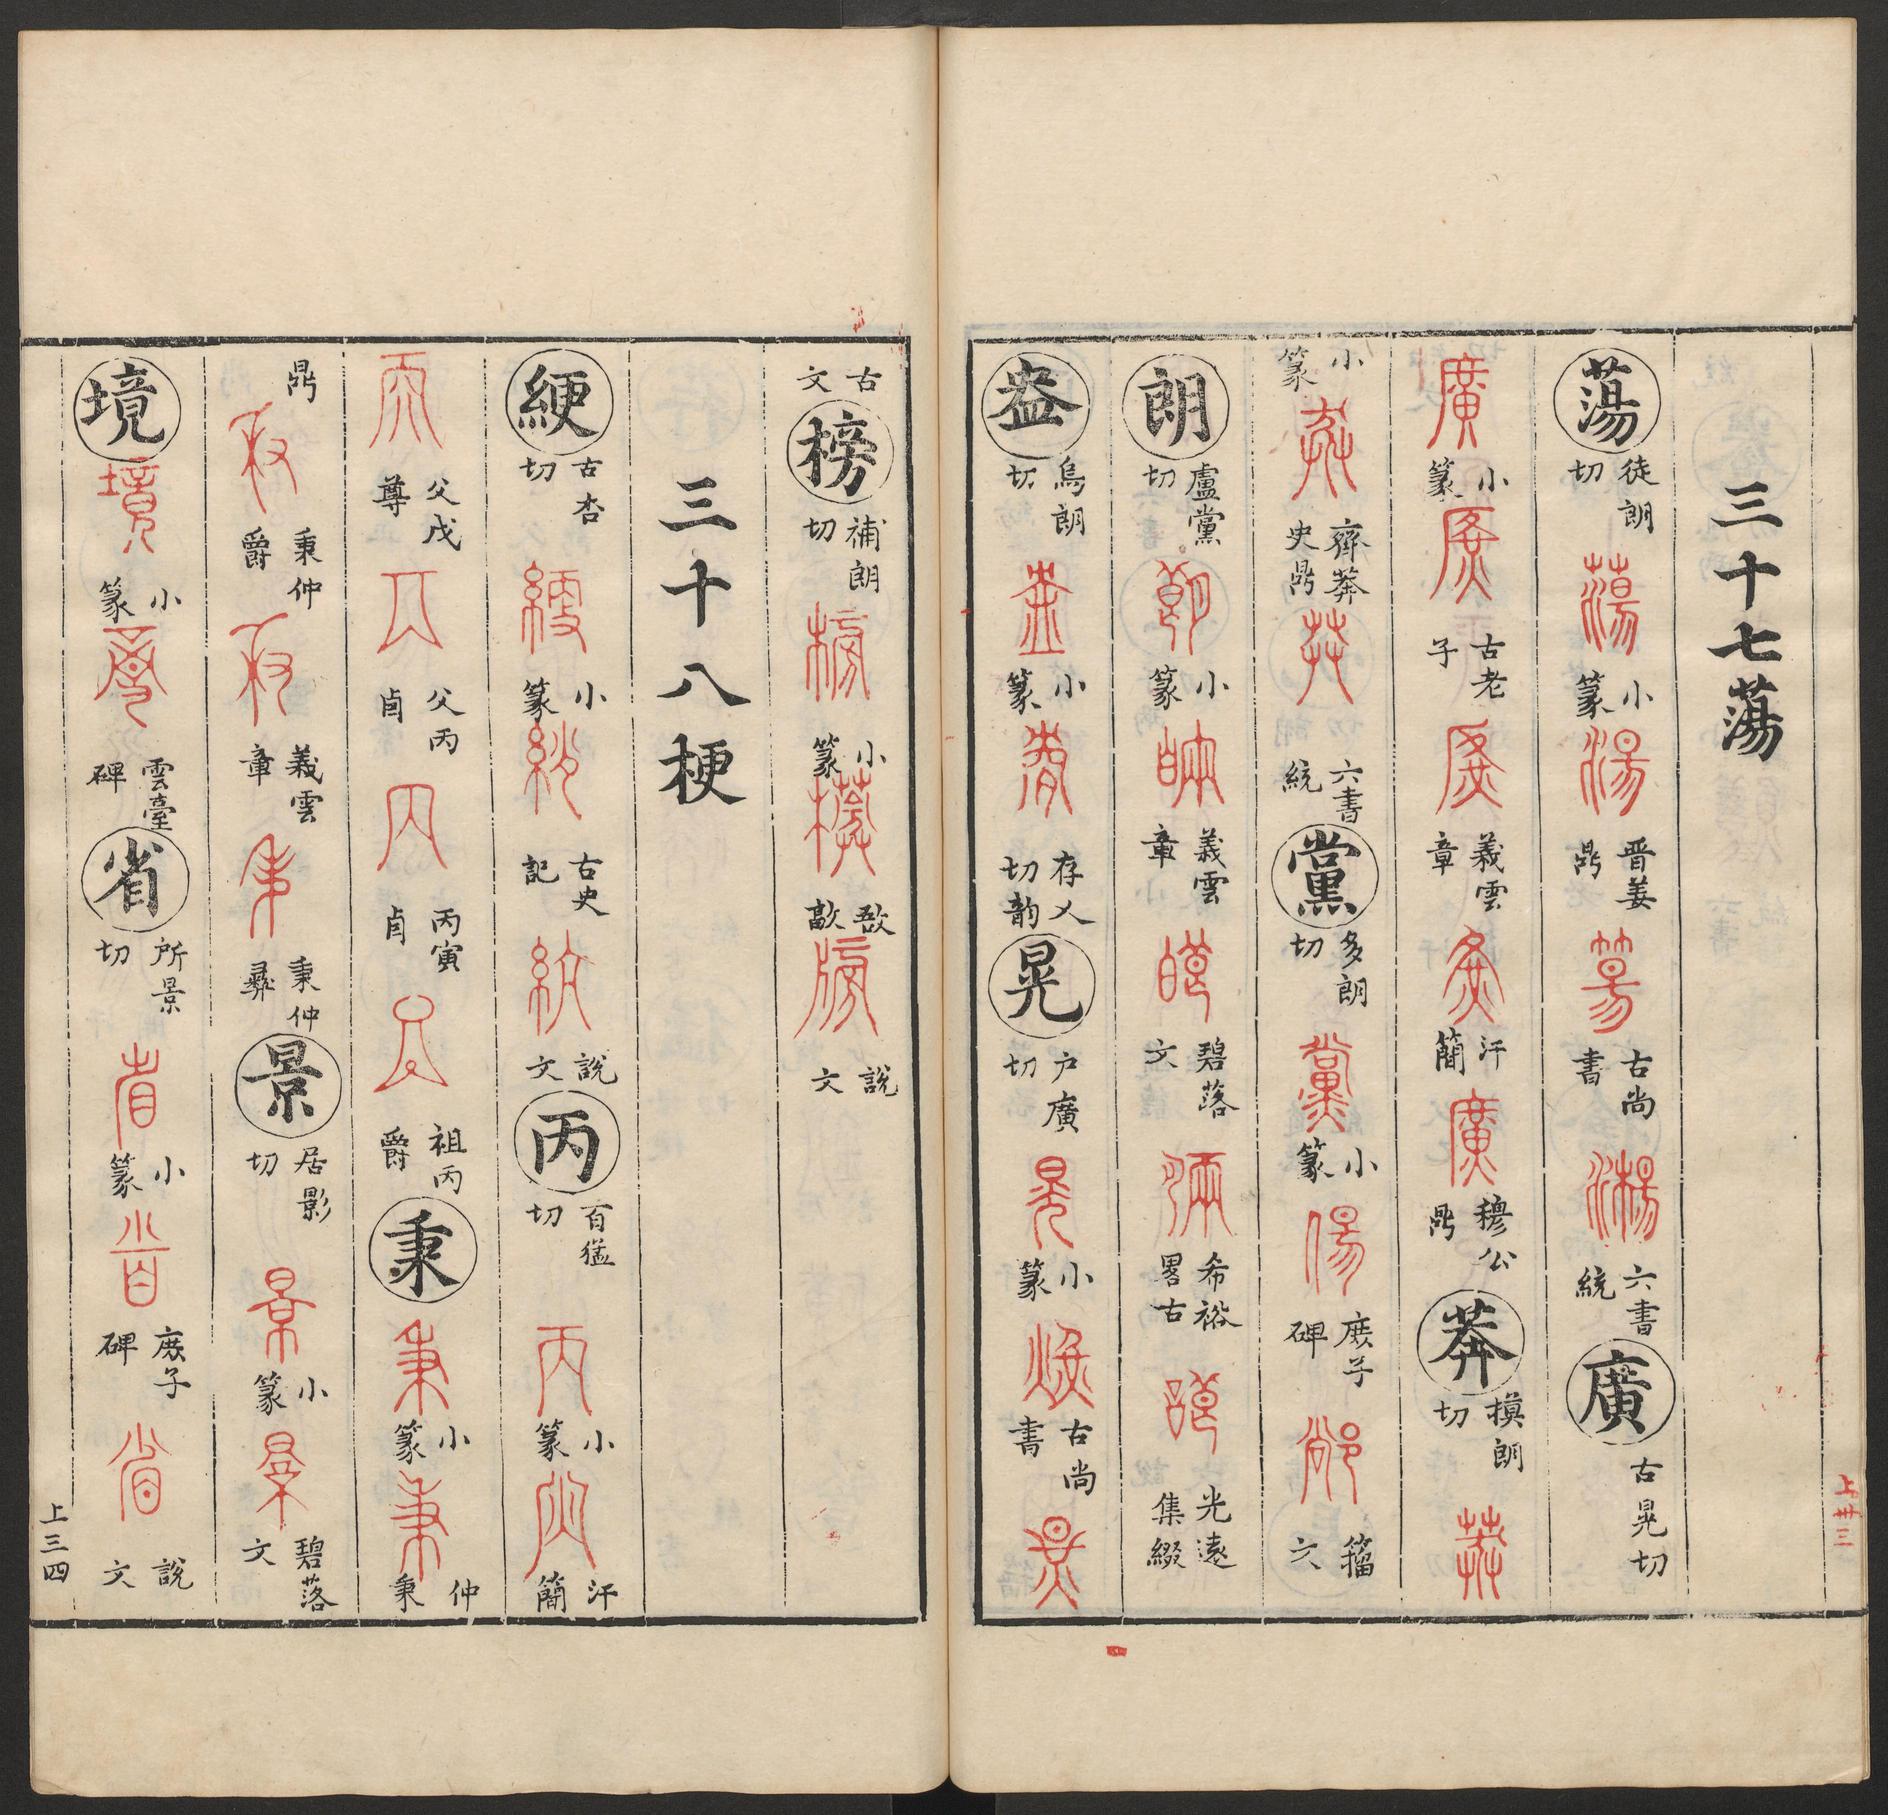 三十七蕩
蕩 徒朗切 蕩 小篆 湯 晋姜鼎 古尚書 六書統 廣 古晃切
廣 小篆 古老子 義雲章 汗簡 廣 穆公鼎 莽 模朗切 莽
小篆 齊莽史鼎 六書統 黨 多朗切 黨 小篆 庶子碑 籀文
朗 盧黨切 朗 小篆 義雲章 碧落文 希裕畧古 光遠集綴
盎 烏朗切 盎 小篆 存乂切韵 晃 户廣切 晃 小篆 古尚書
古文 榜 補朗切 榜 小篆 敔敵 說文
三十八梗
綆 古杏切 綆 小篆 古史記 說文 丙 百猛切 丙 小篆 汗簡
父戊尊 父丙卣 丙寅卣 祖丙爵 秉 秉 小篆 秉 仲秉
鼎 秉仲爵 義雲章 秉仲彝 景 居影切 景 小篆 碧落文
境 境 小篆 雲臺碑 省 所景切 省 小篆 庶子碑 省 說文
上三四
上卅三